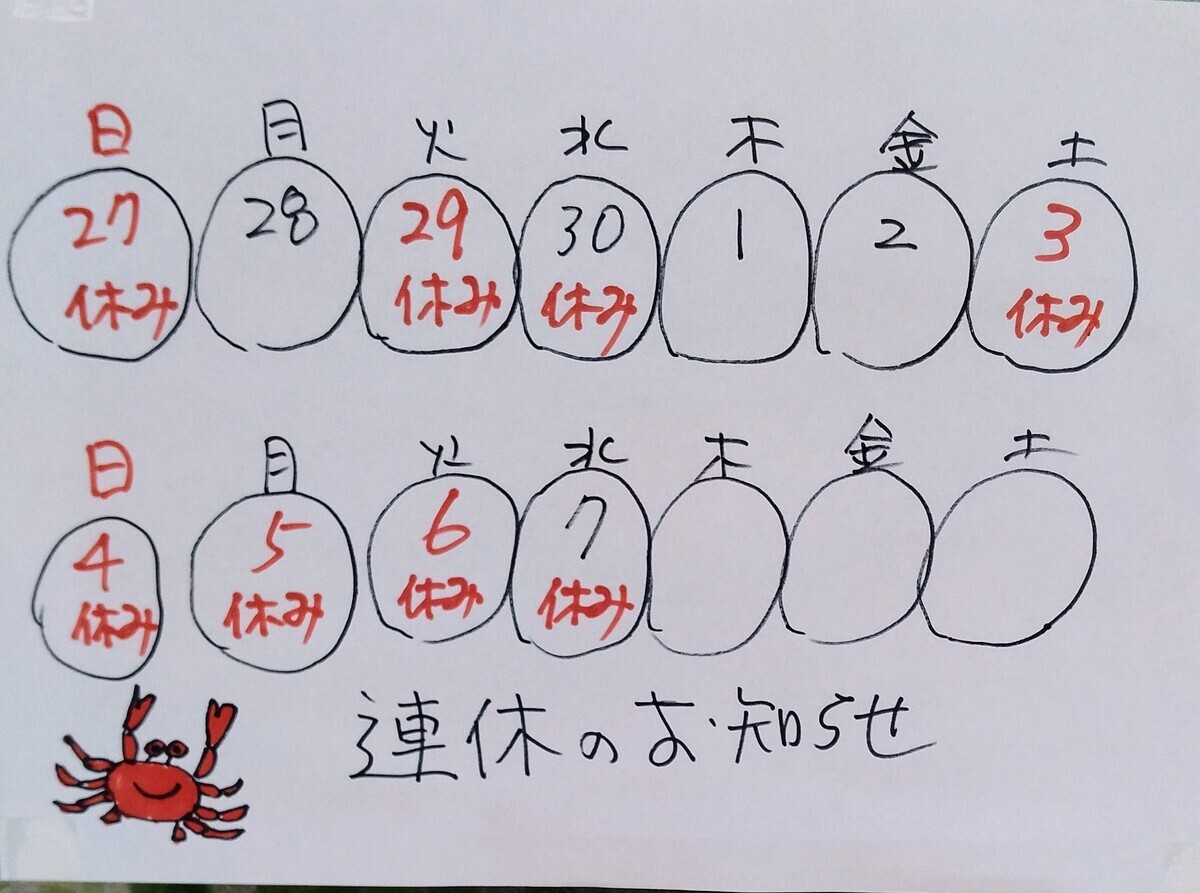 日 月 火 水 木 金 土
27 28 29 30 1 2 3
休み 休み 休み 休み
日 月 火 水 木 金 土
4 5 6 7
休み 休み 休み 休み
連休のお知らせ